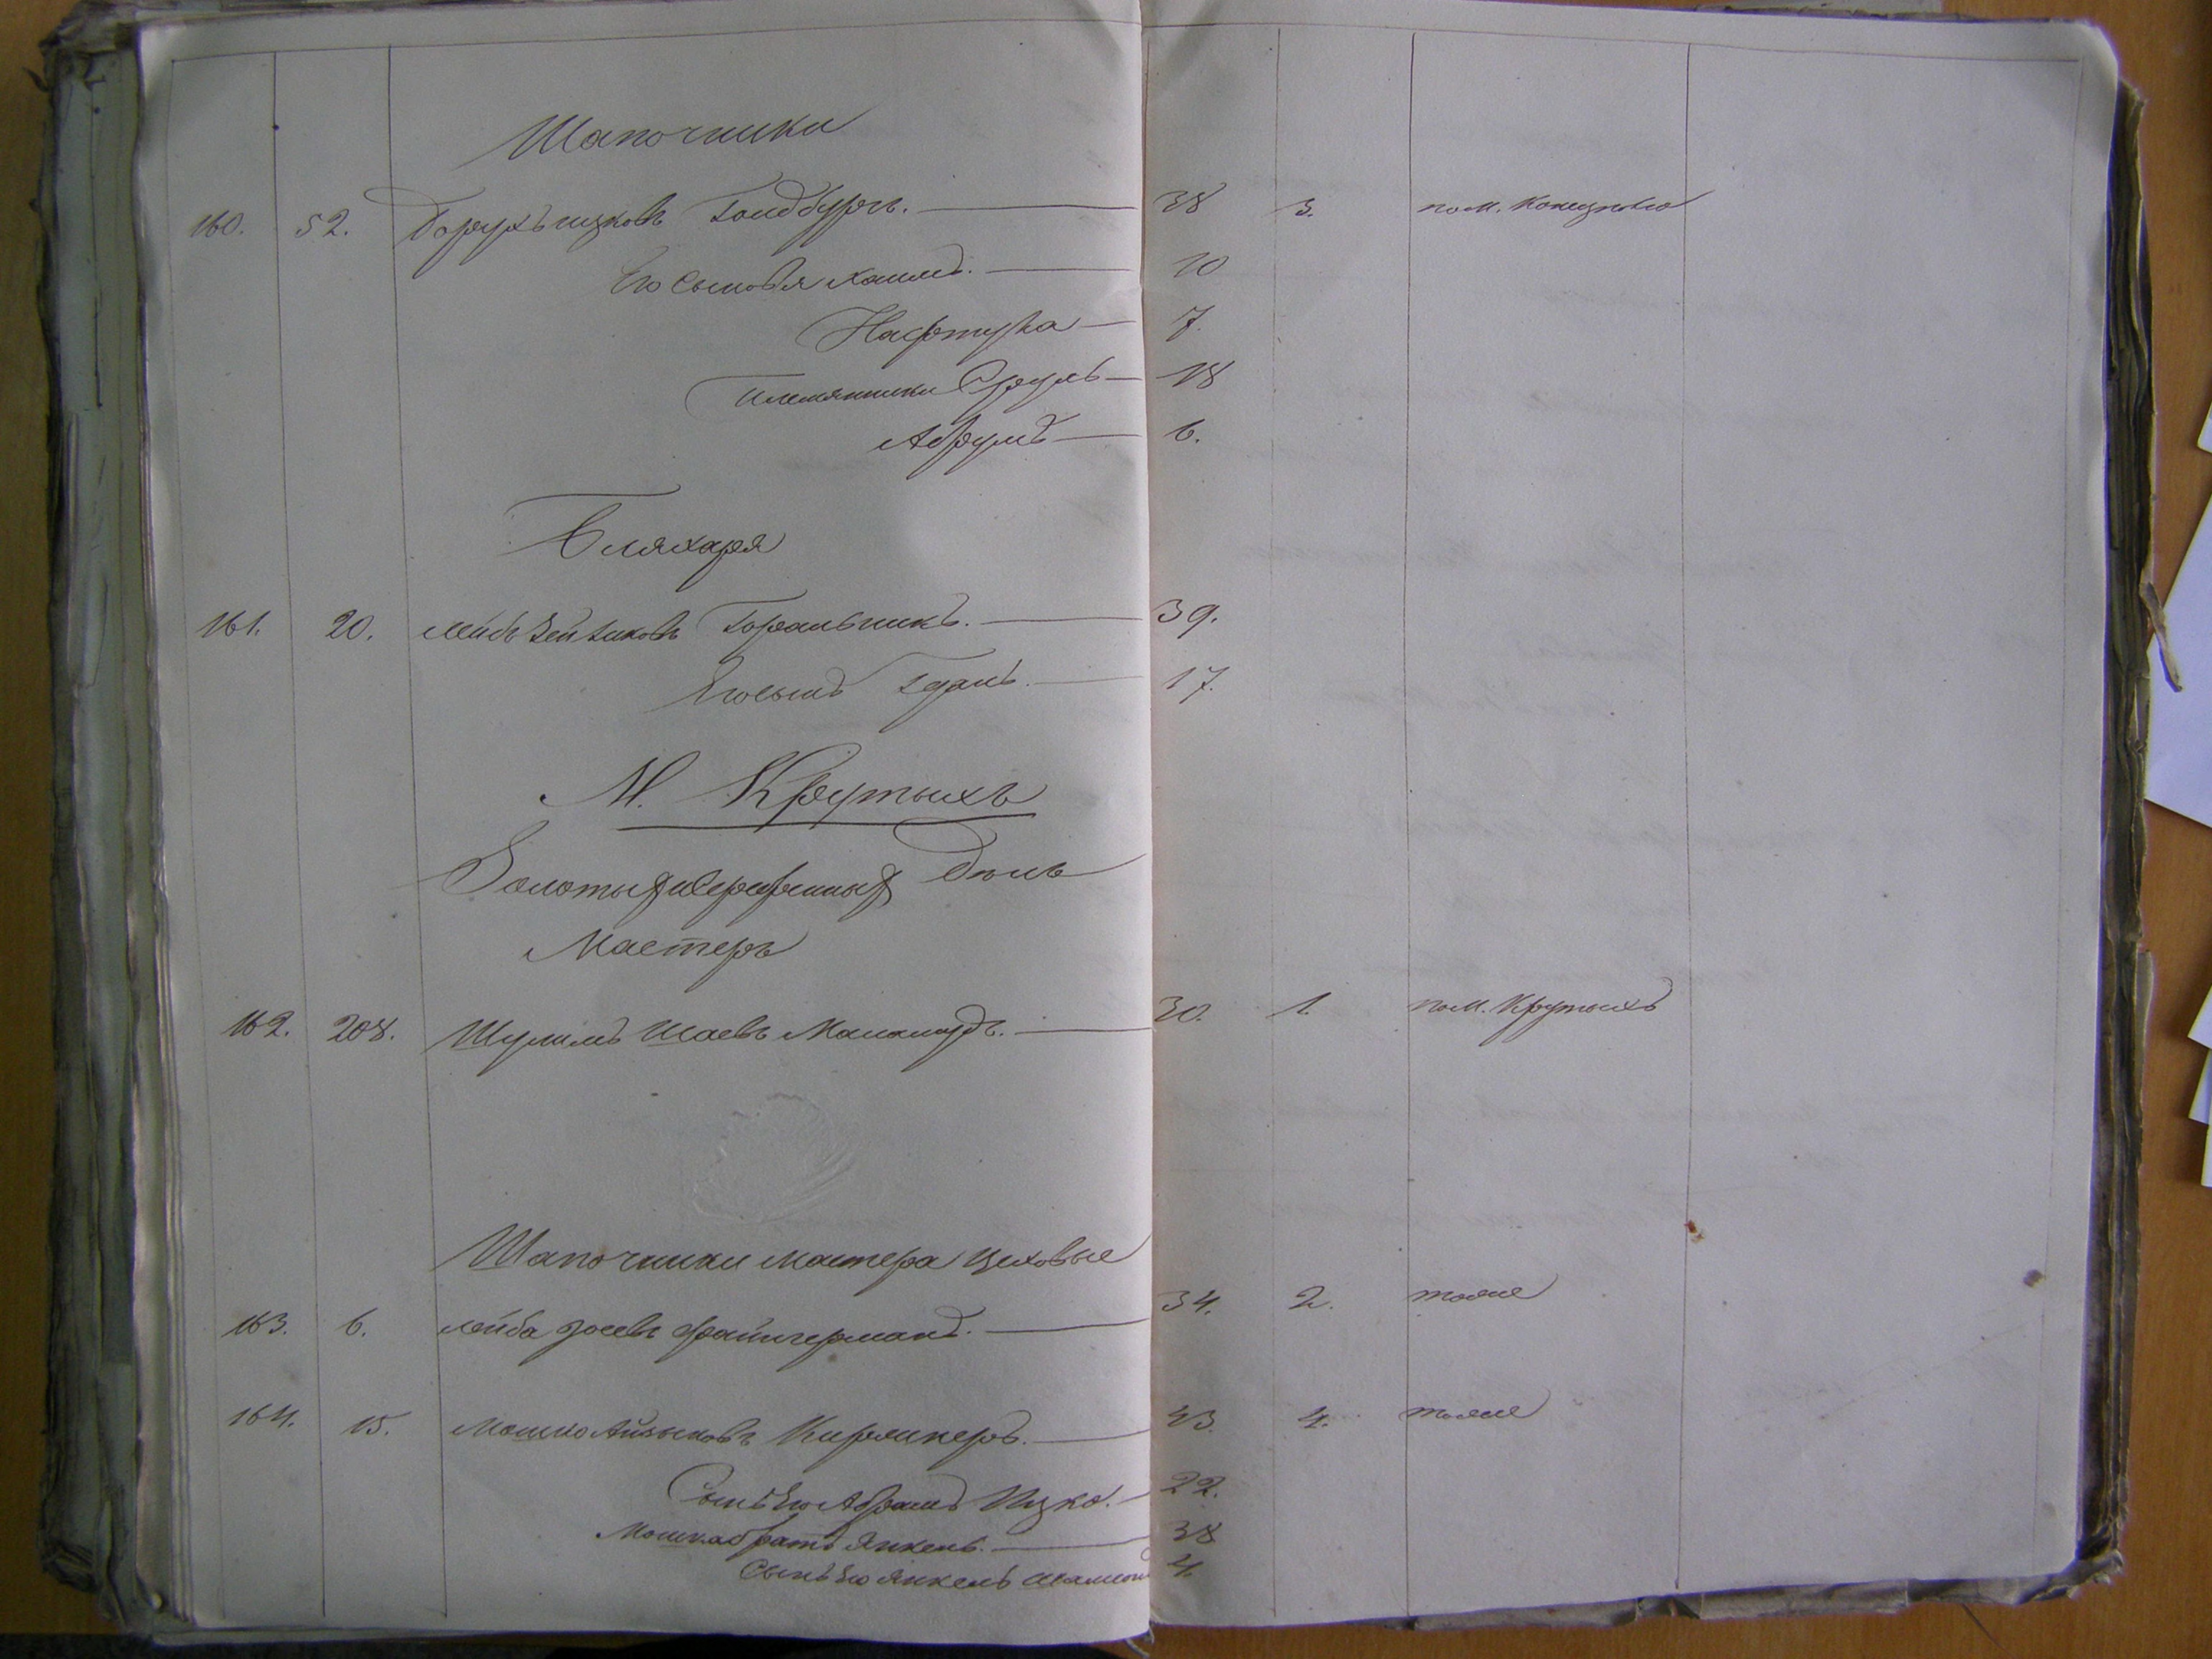 Шапочники
160. 52. Борухъ Ицковъ Голдбургъ. 38 3. пом. Конецполю
Его сыновья Хаимъ. 10
Нафтула 7.
Племянники Сруль 18
Абрумъ 6.
Бляхаря
161. 20. Лейбъ Зейликовъ Горальникъ. 39.
Его сынъ 17.
М. Крутыхъ
Золотыхъ и Серебряныхъ Дѣлъ
Мастеръ
162. 208. Шулимъ Шаевъ Маламудъ. 30. 1. пом. Крутыхъ
Шапочники мастера цеховые
163. 6. Лейба Зосевъ Файнгерманъ. 34. 2. тоже
164. 15. Мошко Айзыковъ 43. 4. тоже
Сынъ Его Абрамъ Ицко. 22.
Мошка братъ Янкель. 38
Сынъ Его Янкель 4.